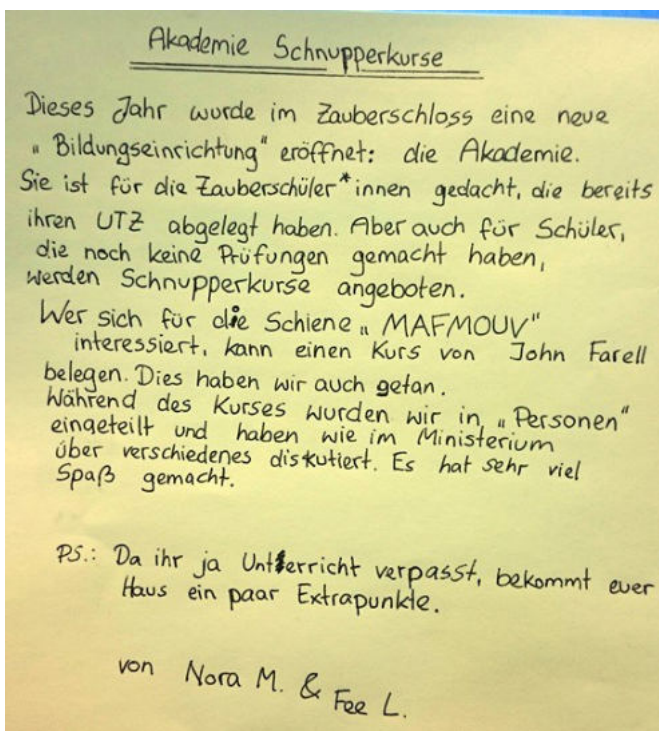 Akademie Schnupperkurse
Dieses Jahr wurde im Zauberschloss eine neue
„Bildungseinrichtung" eröffnet: die Akademie.
Sie ist für die Zauberschüler*innen gedacht, die bereits
ihren UTZ abgelegt haben. Aber auch für Schüler,
die noch keine Prüfungen gemacht haben,
werden Schnupperkurse angeboten.
Wer sich für die Schiene „MAFMOUV"
interessiert, kann einen Kurs von John Farell
belegen. Dies haben wir auch getan.
Während des Kurses wurden wir in „Personen"
eingeteilt und haben wie im Ministerium
über verschiedenes diskutiert. Es hat sehr viel
Spaß gemacht.
PS.: Da ihr ja Unterricht verpasst, bekommt euer
Haus ein paar Extrapunkte.
von Nora M. & Fee L.